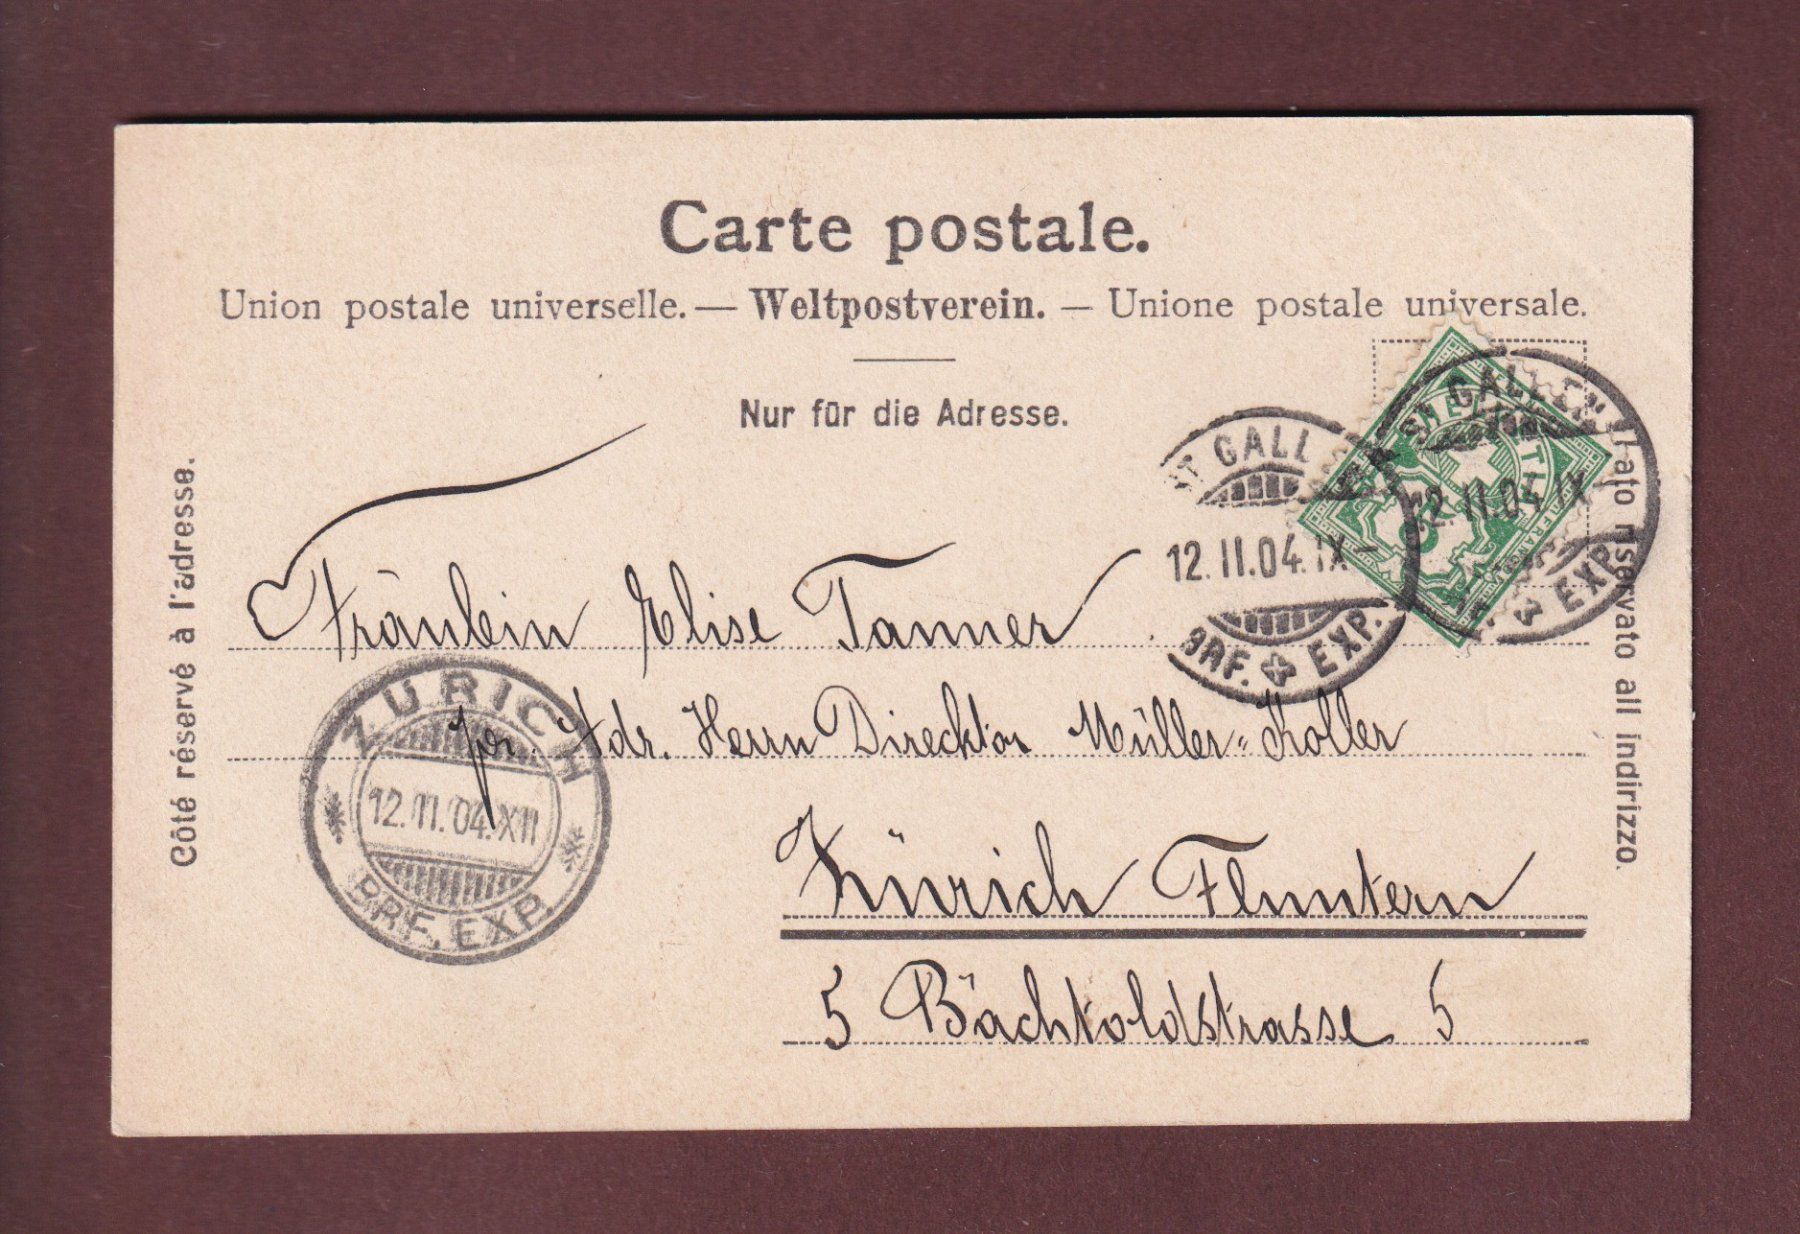 Carte postale.
Union postale universelle. — Weltpostverein. — Unione postale universale.
Nur für die Adresse.
Côté réservé à l'adresse.
Lato riservato all indirizzo.
ST GALLEN
12. II. 04. IX–
BRF. EXP.
ST GALLEN
12. II. 04. IX
EXP.
Fräulein Elise Tanner
pr. Adr. Herrn Direcktor Müller-Koller
Zürich Fluntern
5 Bächtoldstrasse 5
ZÜRICH
12. II. 04. XII
BRF. EXP.